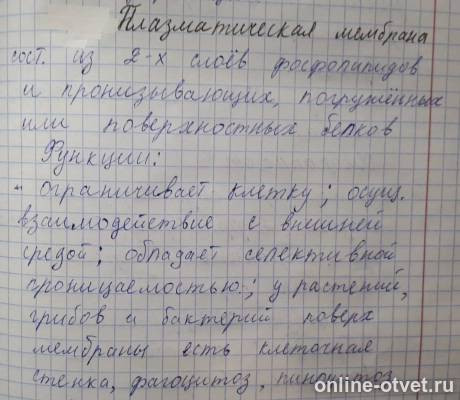 Плазматическая мембрана
сост. из 2-х слоёв фосфолипидов
и пронизывающих, погружённых
или поверхностных белков
Функции:
- ограничивает клетку; осущ.
взаимодействие с внешней
средой; обладает селективной
проницаемостью; у растений,
грибов и бактерий поверх
мембраны есть клеточная
стенка, фагоцитоз, пиноцитоз
online-otvet.ru